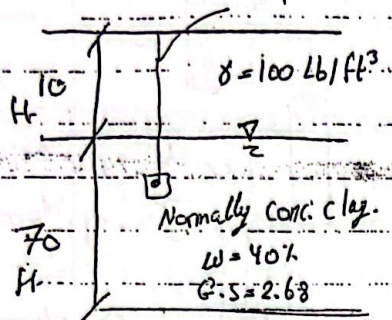 10
ft
γ = 100 Lb/ft³
Normally conc. clay.
70
ft.
ω = 40%
G.s = 2.68